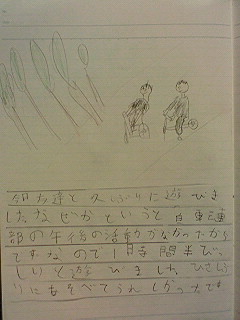 友達と久しぶりに遊びま
したなぜかというと自車連
部の午後の活動がなかったから
ですなので1日時間半び
しいと遊びました。ひさしぶ
りにあそべてうれしかったです